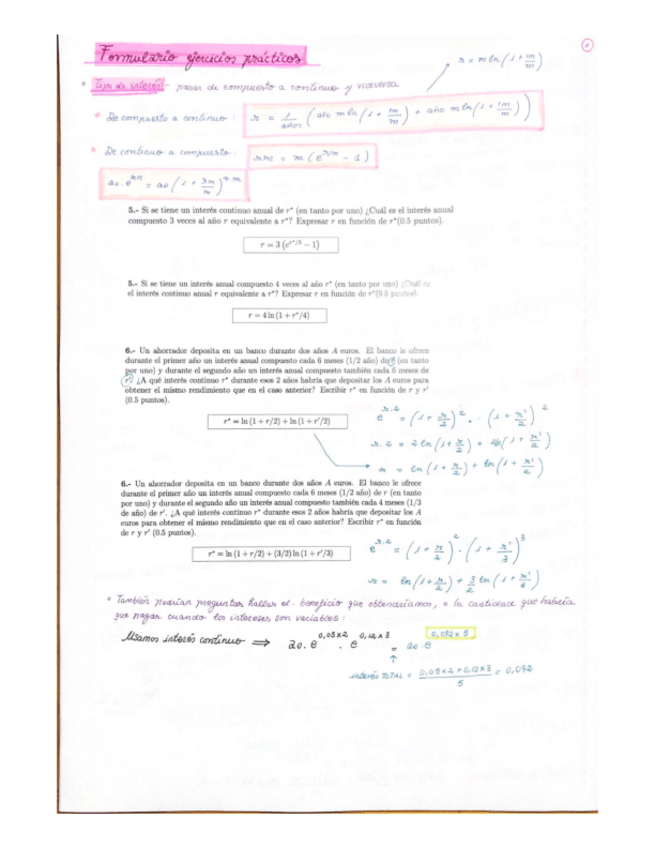 Formulario ejercicios prácticos
r = m ln(1 + rm/m)
* Tipo de interés - pasar de compuesto a continuo y viceversa
* De compuesto a continuo: r = 1/años (año m ln(1 + rm/m) + año m ln(1 + rm/m))
* De continuo a compuesto: rm = m(e^{r/m} - 1)
a0·e^{rn} = a0(1 + rm/m)^{n·m}
5.- Si se tiene un interés continuo anual de r* (en tanto por uno) ¿Cuál es el interés anual
compuesto 3 veces al año r equivalente a r*? Expresar r en función de r*(0.5 puntos).
r = 3(e^{r*/3} − 1)
5.- Si se tiene un interés anual compuesto 4 veces al año r* (en tanto por uno) ¿Cuál es
el interés continuo anual r equivalente a r*? Expresar r en función de r*(0.5 puntos).
r = 4 ln(1 + r*/4)
6.- Un ahorrador deposita en un banco durante dos años A euros. El banco le ofrece
durante el primer año un interés anual compuesto cada 6 meses (1/2 año) de r (en tanto
por uno) y durante el segundo año un interés anual compuesto también cada 6 meses de
r'. ¿A qué interés continuo r* durante esos 2 años habría que depositar los A euros para
obtener el mismo rendimiento que en el caso anterior? Escribir r* en función de r y r'
(0.5 puntos).
r* = ln(1 + r/2) + ln(1 + r'/2)
e^{r·2} = (1 + r/2)^2 · (1 + r'/2)^2
r·2 = 2 ln(1 + r/2) + 2 ln(1 + r'/2)
r = ln(1 + r/2) + ln(1 + r'/2)
6.- Un ahorrador deposita en un banco durante dos años A euros. El banco le ofrece
durante el primer año un interés anual compuesto cada 6 meses (1/2 año) de r (en tanto
por uno) y durante el segundo año un interés anual compuesto también cada 4 meses (1/3
de año) de r'. ¿A qué interés continuo r* durante esos 2 años habría que depositar los A
euros para obtener el mismo rendimiento que en el caso anterior? Escribir r* en función
de r y r' (0.5 puntos).
r* = ln(1 + r/2) + (3/2) ln(1 + r'/3)
e^{r·2} = (1 + r/2)^2 · (1 + r'/3)^3
r = ln(1 + r/2) + 3/2 ln(1 + r'/3)
* También podrían preguntar hallar el beneficio que obtendríamos, o la cantidad que habría
que pagar cuando los intereses son variables:
Usamos interés continuo ⟹ a0·e^{0,05x2} · e^{0,12x3} = a0·e^{0,092 x 5}
interés TOTAL = (0,05x2 + 0,12x3)/5 = 0,092